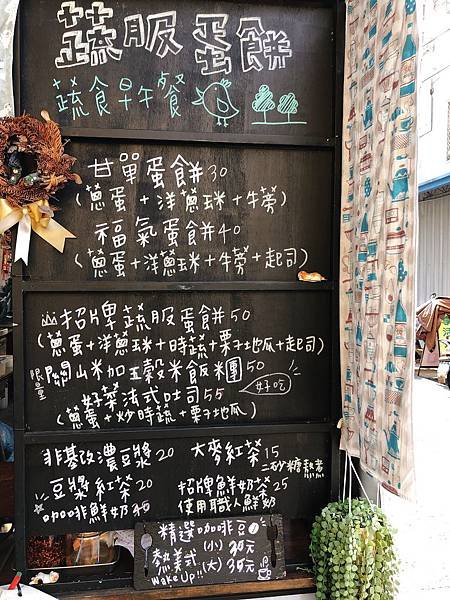 蔬服蛋餅
蔬食早午餐
甘單蛋餅30
(蔥蛋+洋蔥玉米+牛蒡)
福氣蛋餅40
(蔥蛋+洋蔥玉米+牛蒡+起司)
招牌蔬服蛋餅50
(蔥蛋+洋蔥玉米+時蔬+栗子地瓜+起司)
限量 關山米加五穀米飯糰50
好菜法式吐司55 好吃
(蔥蛋+炒時蔬+栗子地瓜)
非基改濃豆漿20 大麥紅茶15
二砂糖熬煮
豆漿紅茶20 招牌鮮奶茶25
咖啡鮮奶40 使用職人鮮奶
精選咖啡豆
熱美式 (小) 30元
(大) 35元
Wake up!!